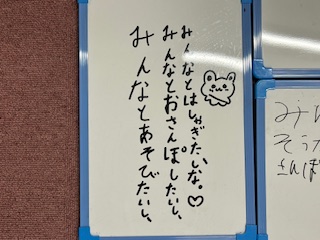 みんなとあそびたいし、
みんなとおさんぽしたいし、
みんなとはしゃぎたいな。♡
さんぽ